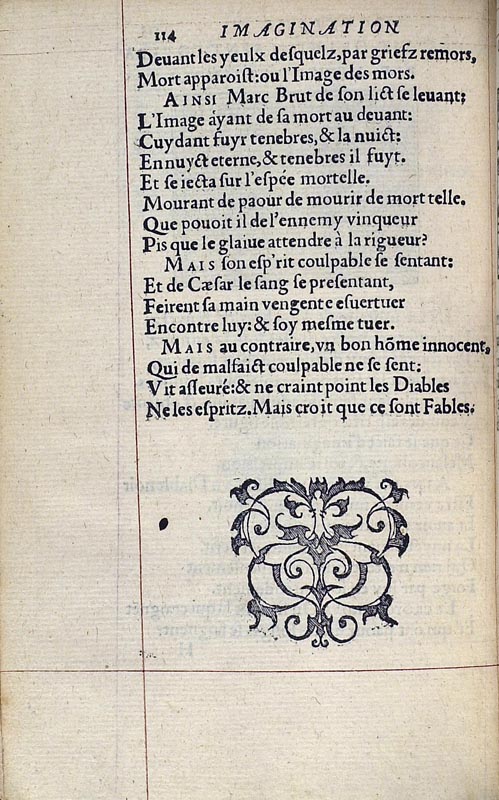 114 IMAGINATION
Deuant les yeulx desquelz, par griefz remors,
Mort apparoist: ou l'Image des mors.
AINSI Marc Brut de son lict se leuant;
L'Image áyant de sa mort au deuant:
Cuydant fuyr tenebres, & la nuict:
En nuyct eterne, & tenebres il fuyt.
Et se iecta sur l'espée mortelle.
Mourant de paour de mourir de mort telle.
Que pouoit il de l'ennemy vinqueur
Pis que le glaiue attendre à la rigueur?
MAIS son esp'rit coulpable se sentant:
Et de Cæsar le sang se presentant,
Feirent sa main vengente esuertuer
Encontre luy: & soy mesme tuer.
MAIS au contraire, vn bon hõme innocent,
Qui de malfaict coulpable ne se sent:
Vit asseuré: & ne craint point les Diables
Ne les espritz. Mais croit que ce sont Fables.